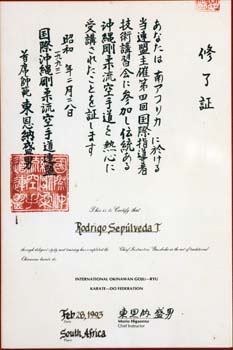 修了証
あなたは南アフリカに於ける
当連盟主催第四回国際指導者
技術講習会に参加し伝統ある
沖縄剛柔流空手道を熱心に
受講されたことを証します
昭和 年二月二八日
一九九三
国際沖縄剛柔流空手道連盟
首席師範 東恩納盛男
This is to Certify that
Rodrigo Sepúlveda T
through diligent study and training has completed the Chief Instructors in the art of traditional
Okinawan karate do.
INTERNATIONAL OKINAWAN GOJU-RYU
KARATE-DO FEDERATION
Feb 28, 1993 東恩納盛男
Morio Higaonna
Chief Instructor
South Africa
Place